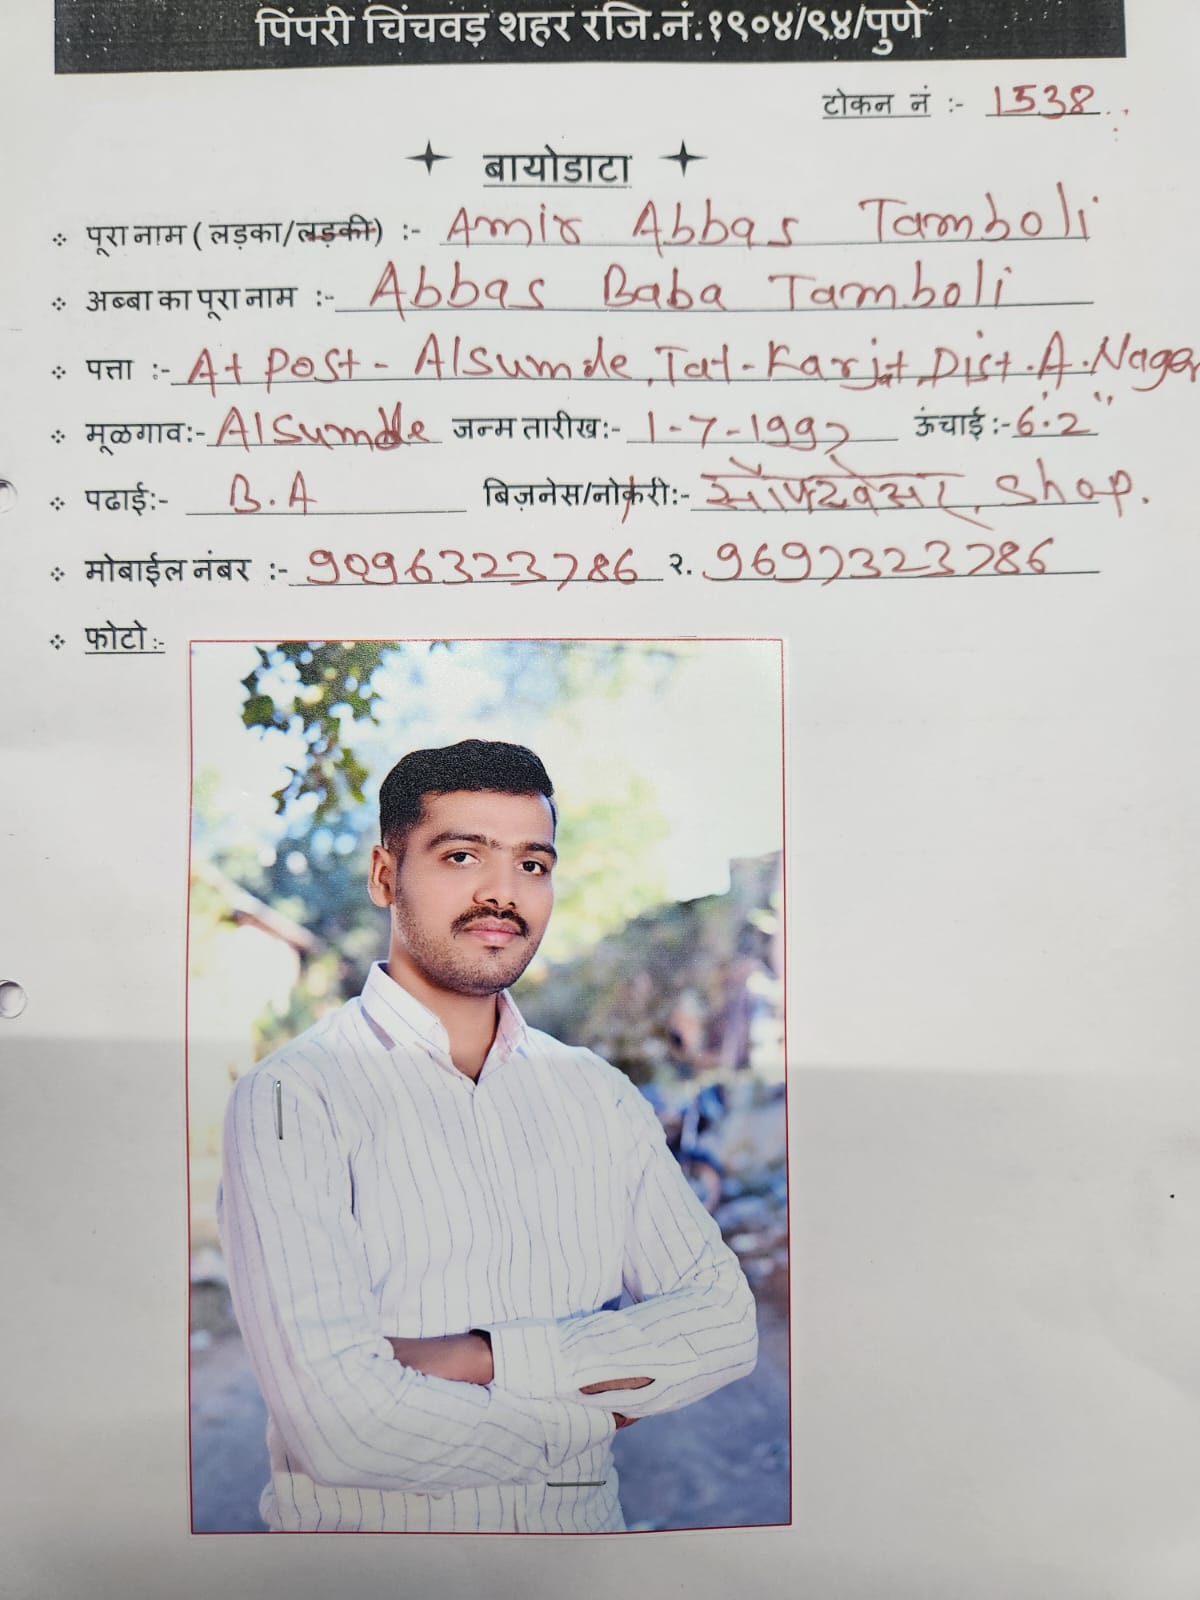 पिंपरी चिंचवड़ शहर रजि.नं.१९०४/९४/पुणे
टोकन नं :- 1538
बायोडाटा
पूरा नाम ( लड़का/लड़की) :- Amir Abbas Tamboli
अब्बा का पूरा नाम :- Abbas Baba Tamboli
पत्ता :- At Post - Alsumde, Tal - Karjat, Dist. A. Nager
मूळगाव:- Alsumde जन्म तारीख:- 1-7-1997 ऊंचाई :- 6'.2"
पढाई:- B.A बिज़नेस/नोकरी:- सॉफ्टवेअर, Shop.
मोबाईल नंबर :- 9096323786 २. 9697323786
फोटो :-